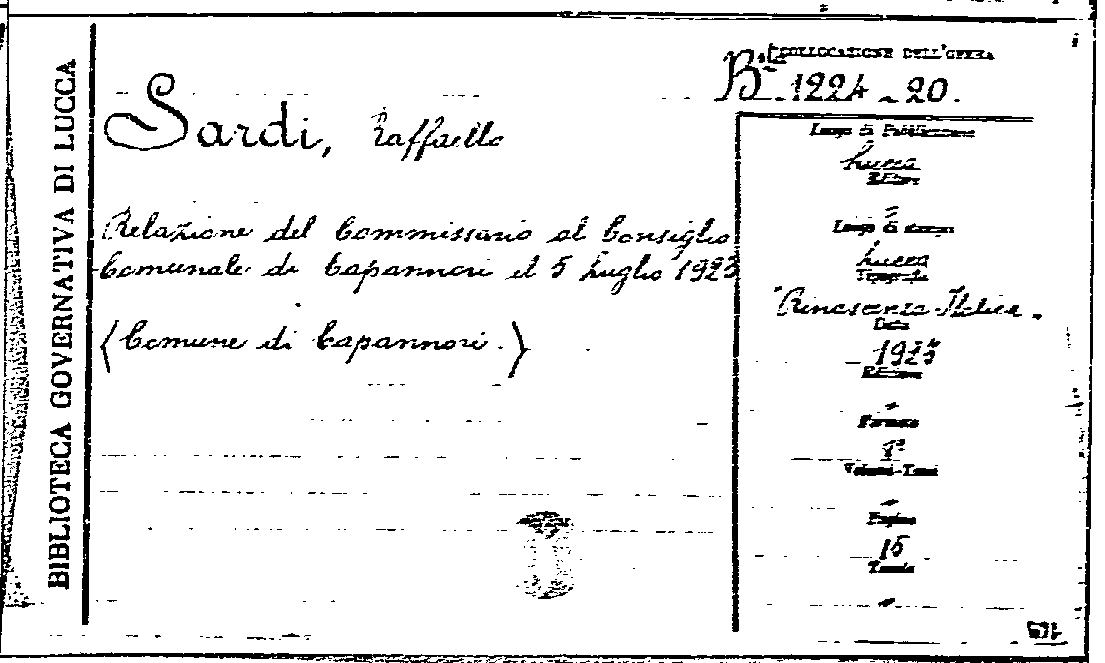 BIBLIOTECA GOVERNATIVA DI LUCCA
COLLOCAZIONE DELL'OPERA
B.ta 1224 - 20.
Sardi, Raffaello
Relazione del Commissario al Consiglio
Comunale di Capannori il 5 Luglio 1923
(Comune di Capannori.)
Luogo di Pubblicazione
Lucca
Editore
Luogo di stampa
Lucca
Tipografia
Rinascenza Italica.
Data
1923
Edizione
Formato
8°
Volumi-Tomi
Pagine
15
Tavole